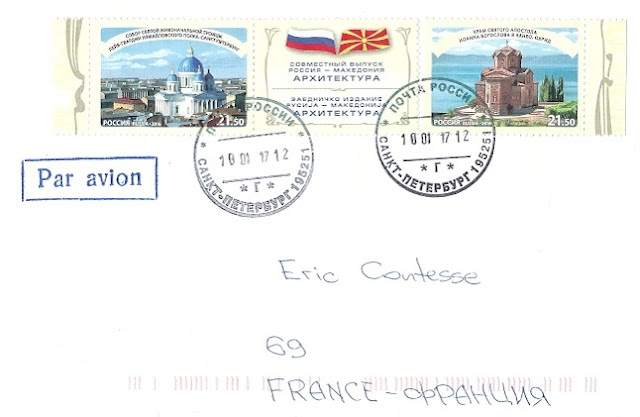 СОБОР СВЯТОЙ ЖИВОНАЧАЛЬНОЙ ТРОИЦЫ
ЛЕЙБ-ГВАРДИИ ИЗМАЙЛОВСКОГО ПОЛКА. САНКТ-ПЕТЕРБУРГ
РОССИЯ RUSSIA • 2016
21.50
СОВМЕСТНЫЙ ВЫПУСК
РОССИЯ – МАКЕДОНИЯ
АРХИТЕКТУРА
ЗАЕДНИЧКО ИЗДАНИЕ
РУСИЈА – МАКЕДОНИЈА
АРХИТЕКТУРА
ХРАМ СВЯТОГО АПОСТОЛА
ИОАННА БОГОСЛОВА В КАНЕО. ОХРИД
РОССИЯ RUSSIA • 2016
21.50
ПОЧТА РОССИИ
10 01 17 12
* Г *
САНКТ-ПЕТЕРБУРГ 195251
ПОЧТА РОССИИ
10 01 17 12
* Г *
САНКТ-ПЕТЕРБУРГ 195251
Par avion
Eric Contesse
69
FRANCE - ФРАНЦИЯ